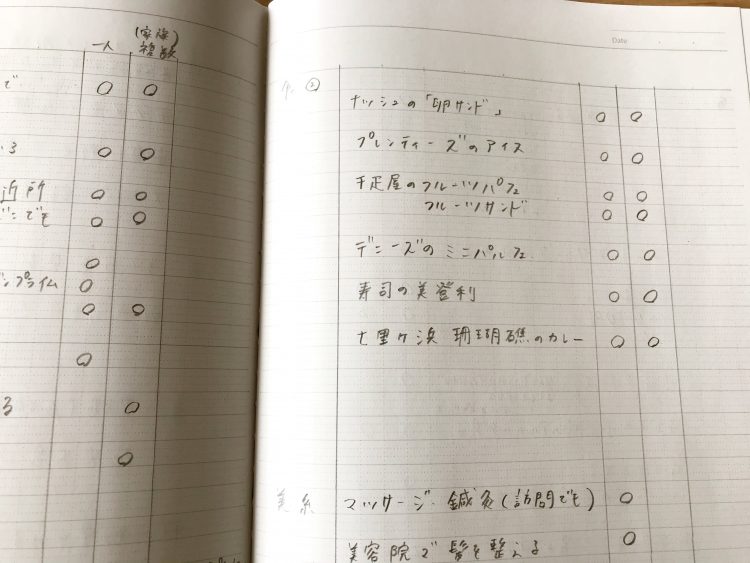 一人 (家族)複数
で
いる
近所
どこでも
ンプライム
る
Date
②
ナッシュの「卵サンド」
プレンティーズのアイス
千疋屋のフルーツパフェ
フルーツサンド
デニーズのミニパルフェ
寿司の美登利
七里ヶ浜 珊瑚礁のカレー
美系 マッサージ・鍼灸(訪問でも)
美容院で髪を整える